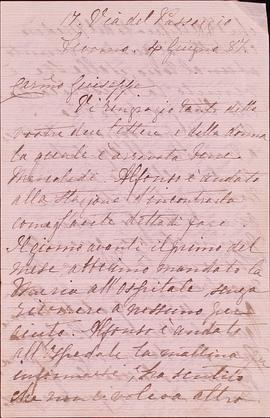 17. Via del Passeggio
Livorno. 4 Giugno 87.
Carmo Giuseppe
Vi ringrazio tanto delle
vostre due lettere e della donna
la quale è arrivata bene
Mercoledì. Alfonso è andato
alla Stazione d'incontrarla
come avete detto di fare.
Il giorno avanti il primo del
mese abbiamo mandato la
Maria all'ospitale, senza
ricorrere a nessuno per
aiuto. Alfonso è andato
all'Ospedale la mattina
ha sentito
che non ci voleva altro